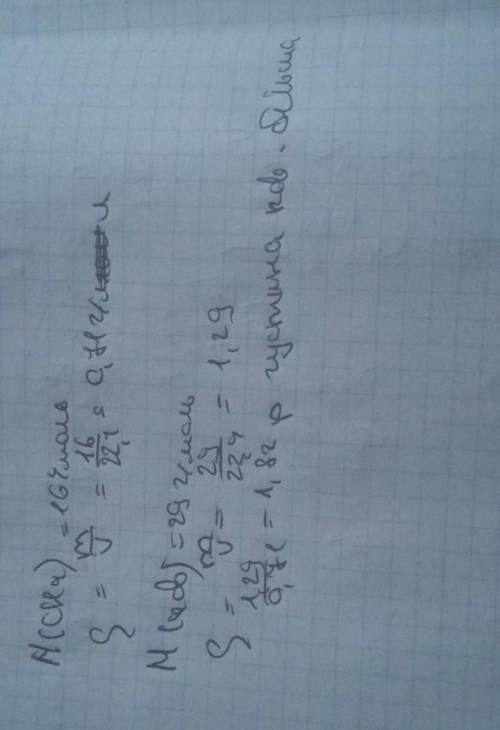 M(CH4) = 16 г/моль
ρ = m/V = 16/22,4 = 0,71 г/л
M(пов) = 29 г/моль
ρ = m/V = 29/22,4 = 1,29
1,29/0,71 = 1,82 р густина пов. більша